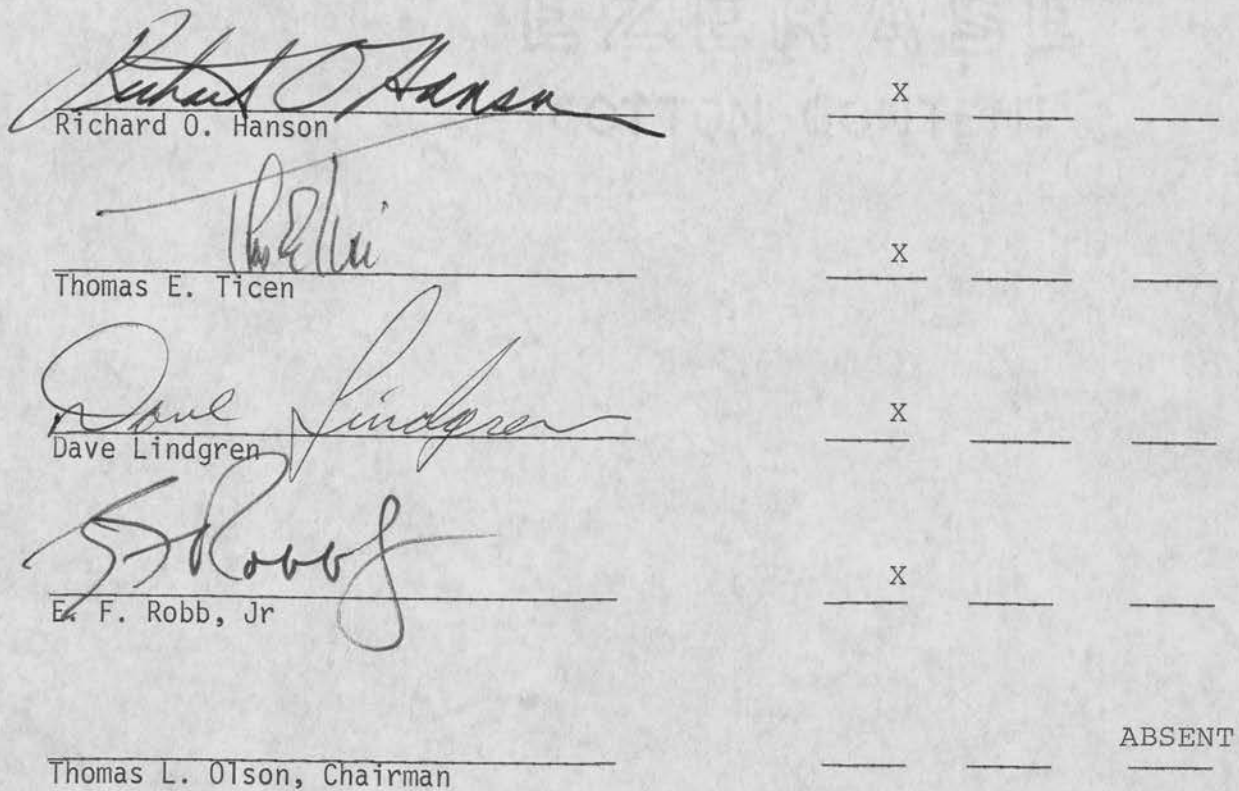 Richard O Hanson X
Richard O. Hanson
X
Thomas E. Ticen
Dave Lindgren X
Dave Lindgren
E F Robb Jr X
E. F. Robb, Jr
ABSENT
Thomas L. Olson, Chairman